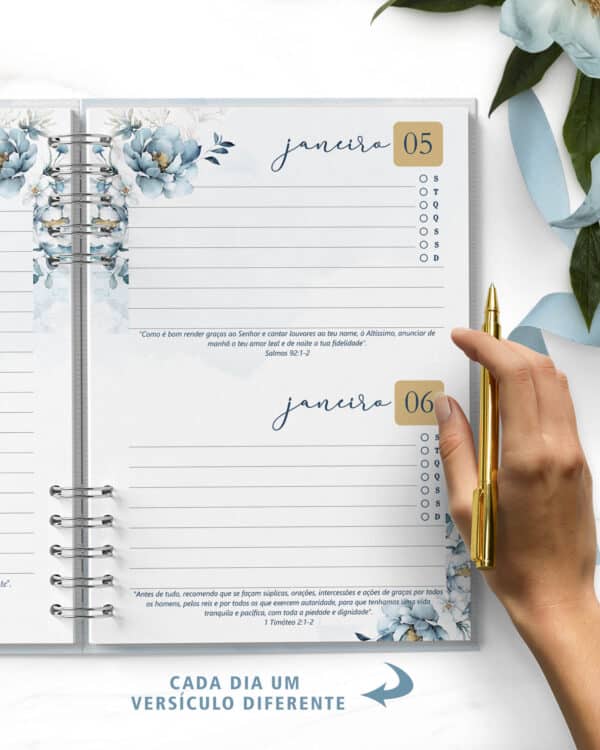 janeiro 05
S
T
Q
Q
S
S
D
"Como é bom render graças ao Senhor e cantar louvores ao teu nome, ó Altíssimo, anunciar de
manhã o teu amor leal e de noite a tua fidelidade".
Salmos 92:1-2
janeiro 06
S
T
Q
Q
S
S
D
te".
"Antes de tudo, recomendo que se façam súplicas, orações, intercessões e ações de graças por todos
os homens, pelos reis e por todos os que exercem autoridade, para que tenhamos uma vida
tranquila e pacífica, com toda a piedade e dignidade".
1 Timóteo 2:1-2
CADA DIA UM
VERSÍCULO DIFERENTE